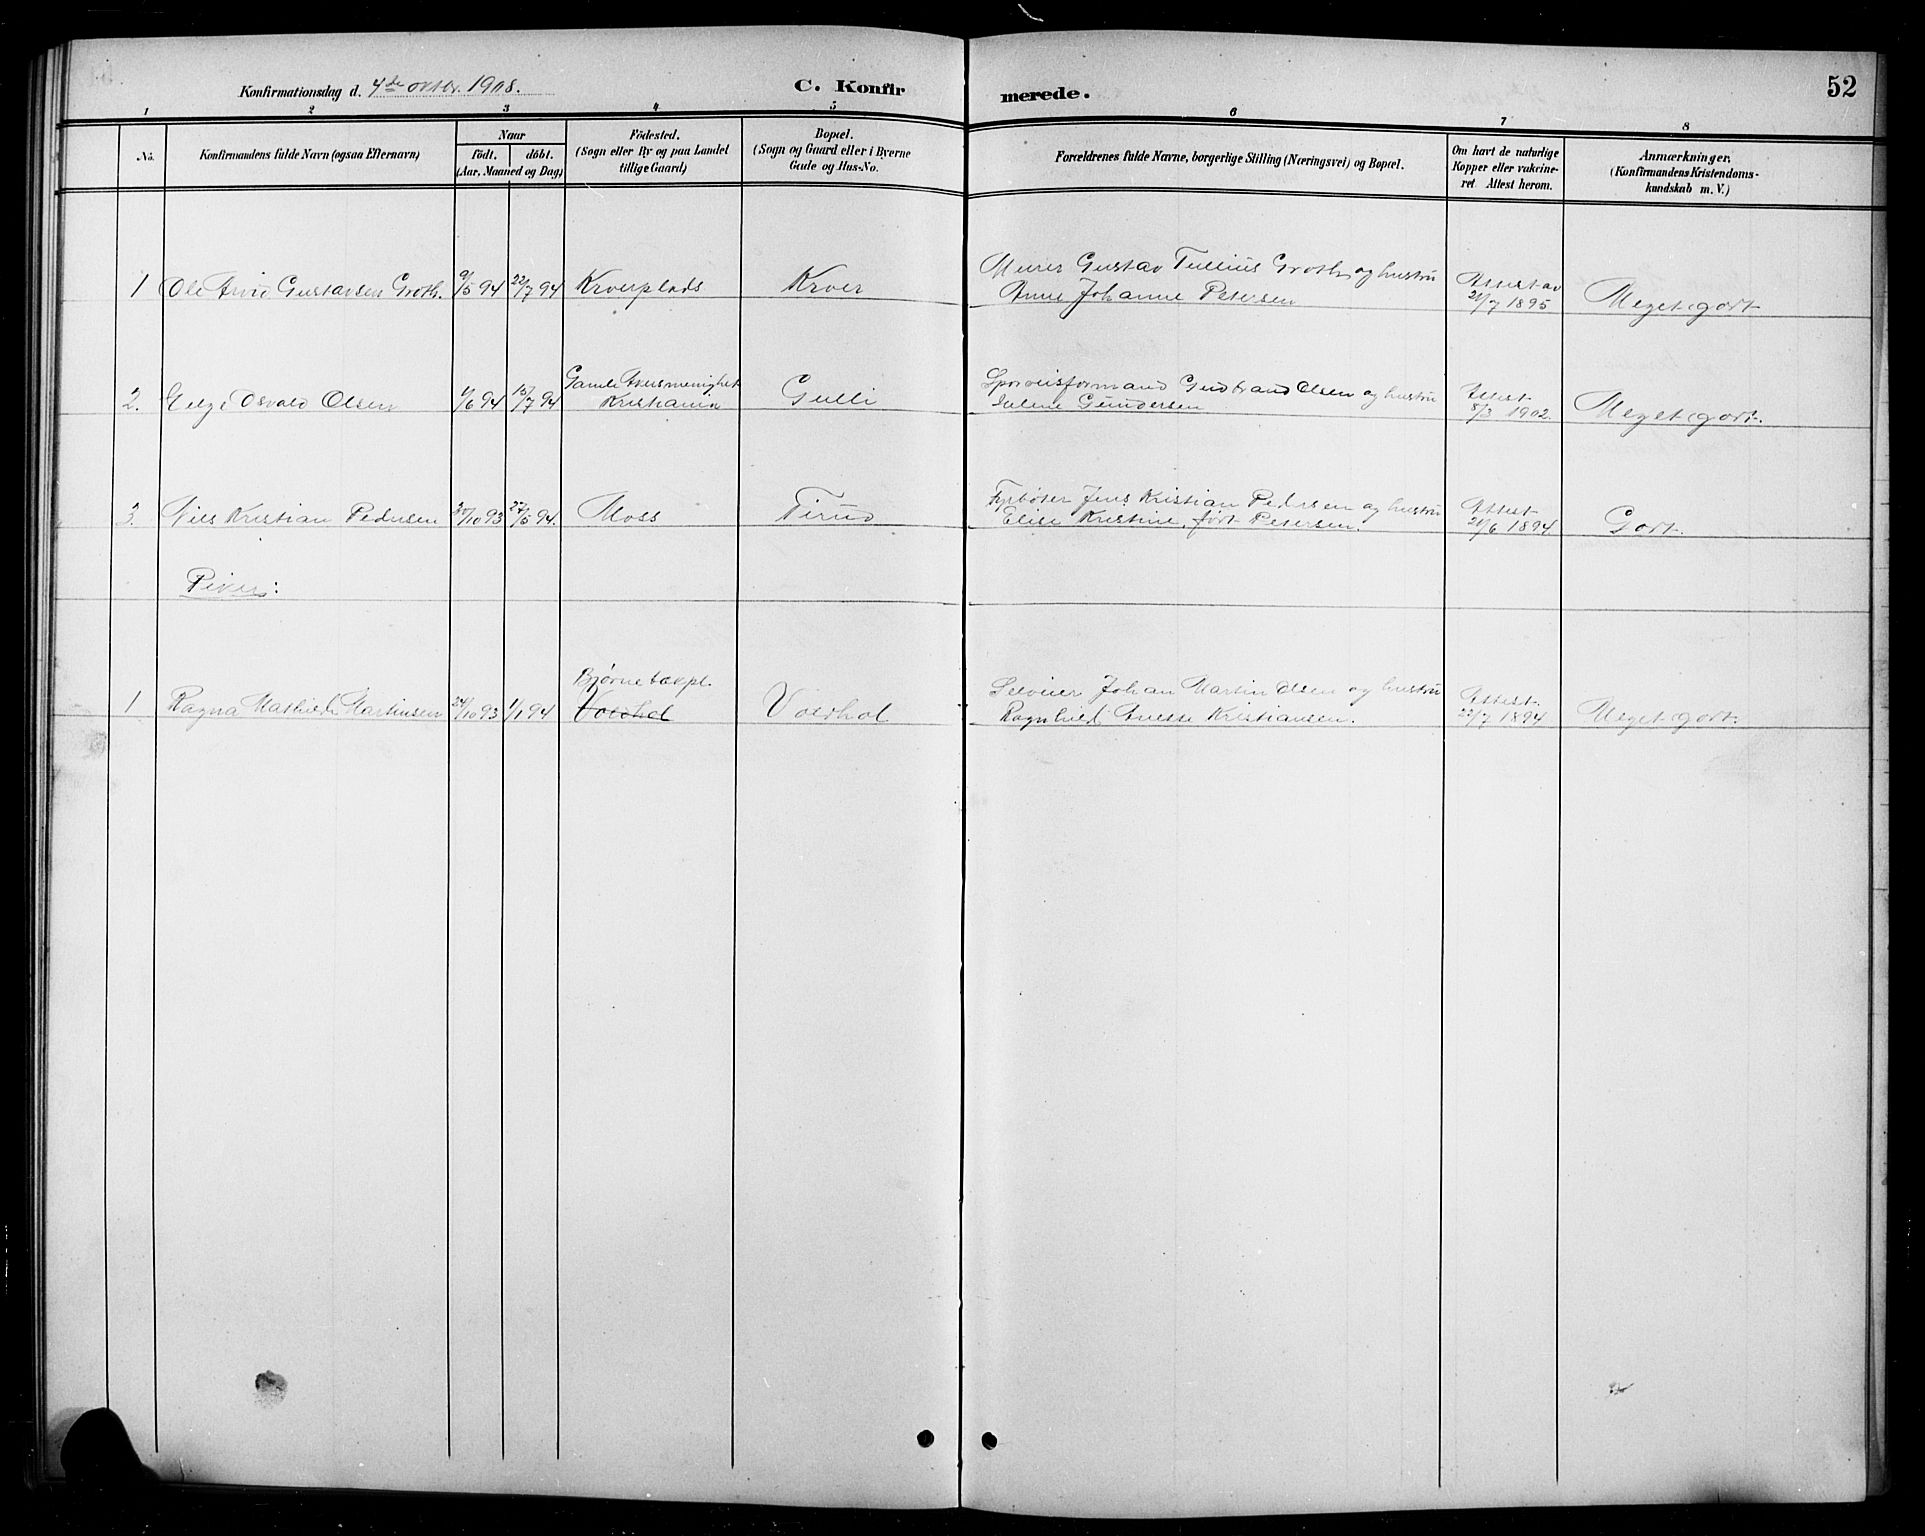 Konfirmationsdag d. 4de oktbr. 1908.
C. Konfirmerede.
52
1 2 3 4 5 6 7 8
No.
Konfirmandens fulde Navn (ogsaa Efternavn)
Naar
födt. döbt.
(Aar, Maaned og Dag)
Födested.
(Sogn eller By og paa Landet
tillige Gaard)
Bopæl.
(Sogn og Gaard eller i Byerne
Gade og Hus-No.
Forældrenes fulde Navne, borgerlige Stilling (Næringsvei) og Bopæl.
Om havt de naturlige
Kopper eller vakcine-
ret Attest herom.
Anmærkninger,
(Konfirmandens Kristendoms-
kundskab m. V.)
1 Ole Arvid Gustavsen Groth. 9/5 94 22/7 94 Kroerplads Kroer
Murer Gustav Tullius Groth og hustru
Anne Johanne Petersen
Attest av
21/7 1895
Meget godt
2. Helge Osvald Olsen 1/6 94 15/7 94
Gamle Akersmenighet
Kristiania
Gulli
Sporveisformand Gudbrand Olsen og hustru
Juline Gundersen
Attest
8/3 1902.
Meget godt.
3. Nils Kristian Pedersen 30/10 93 27/5 94. Moss Tirud
Fyrböter Jens Kristian Pedersen og hustru
Elise Kristine, født Petersen.
Attest
21/6 1894.
Godt.
Piker:
1 Ragna Mathilde Martinsen 24/10 93 1/1 94
Bjørnebækpl.
Voldhol
Voldhol
Selveier Johan Martin Olsen og hustru
Ragnhild Kristiansen.
Attest
22/7 1894
Meget godt.